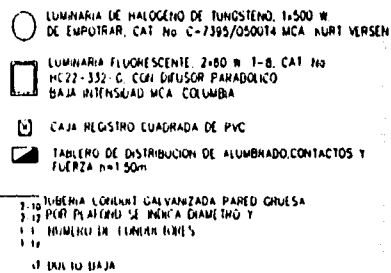 LUMINARIA DE HALOGENO DE TUNGSTENO, 1x500 W
DE EMPOTRAR, CAT No C-7395/050014 MCA KURT VERSEN
LUMINARIA FLUORESCENTE, 2x60 W T-8, CAT No
HC22-332-G, CON DIFUSOR PARABOLICO
BAJA INTENSIDAD MCA COLUMBIA
CAJA REGISTRO CUADRADA DE PVC
TABLERO DE DISTRIBUCION DE ALUMBRADO,CONTACTOS Y
FUERZA h=1 50m
TUBERIA CONDUIT GALVANIZADA PARED GRUESA
2-10 POR PLAFOND SE INDICA DIAMETRO Y
2-12 NUMERO DE CONDUCTORES
DUCTO BAJA